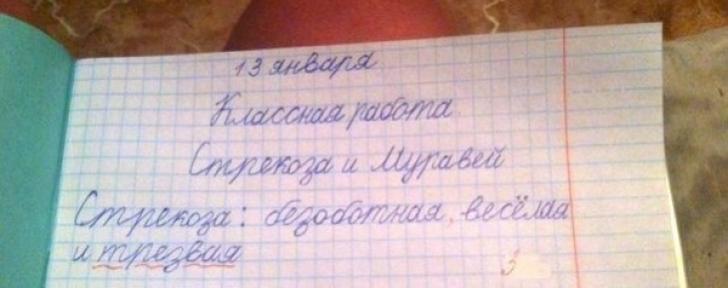 13 января
Классная работа
Стрекоза и Муравей
Стрекоза: безоботная, весёлая
и трезвая
3